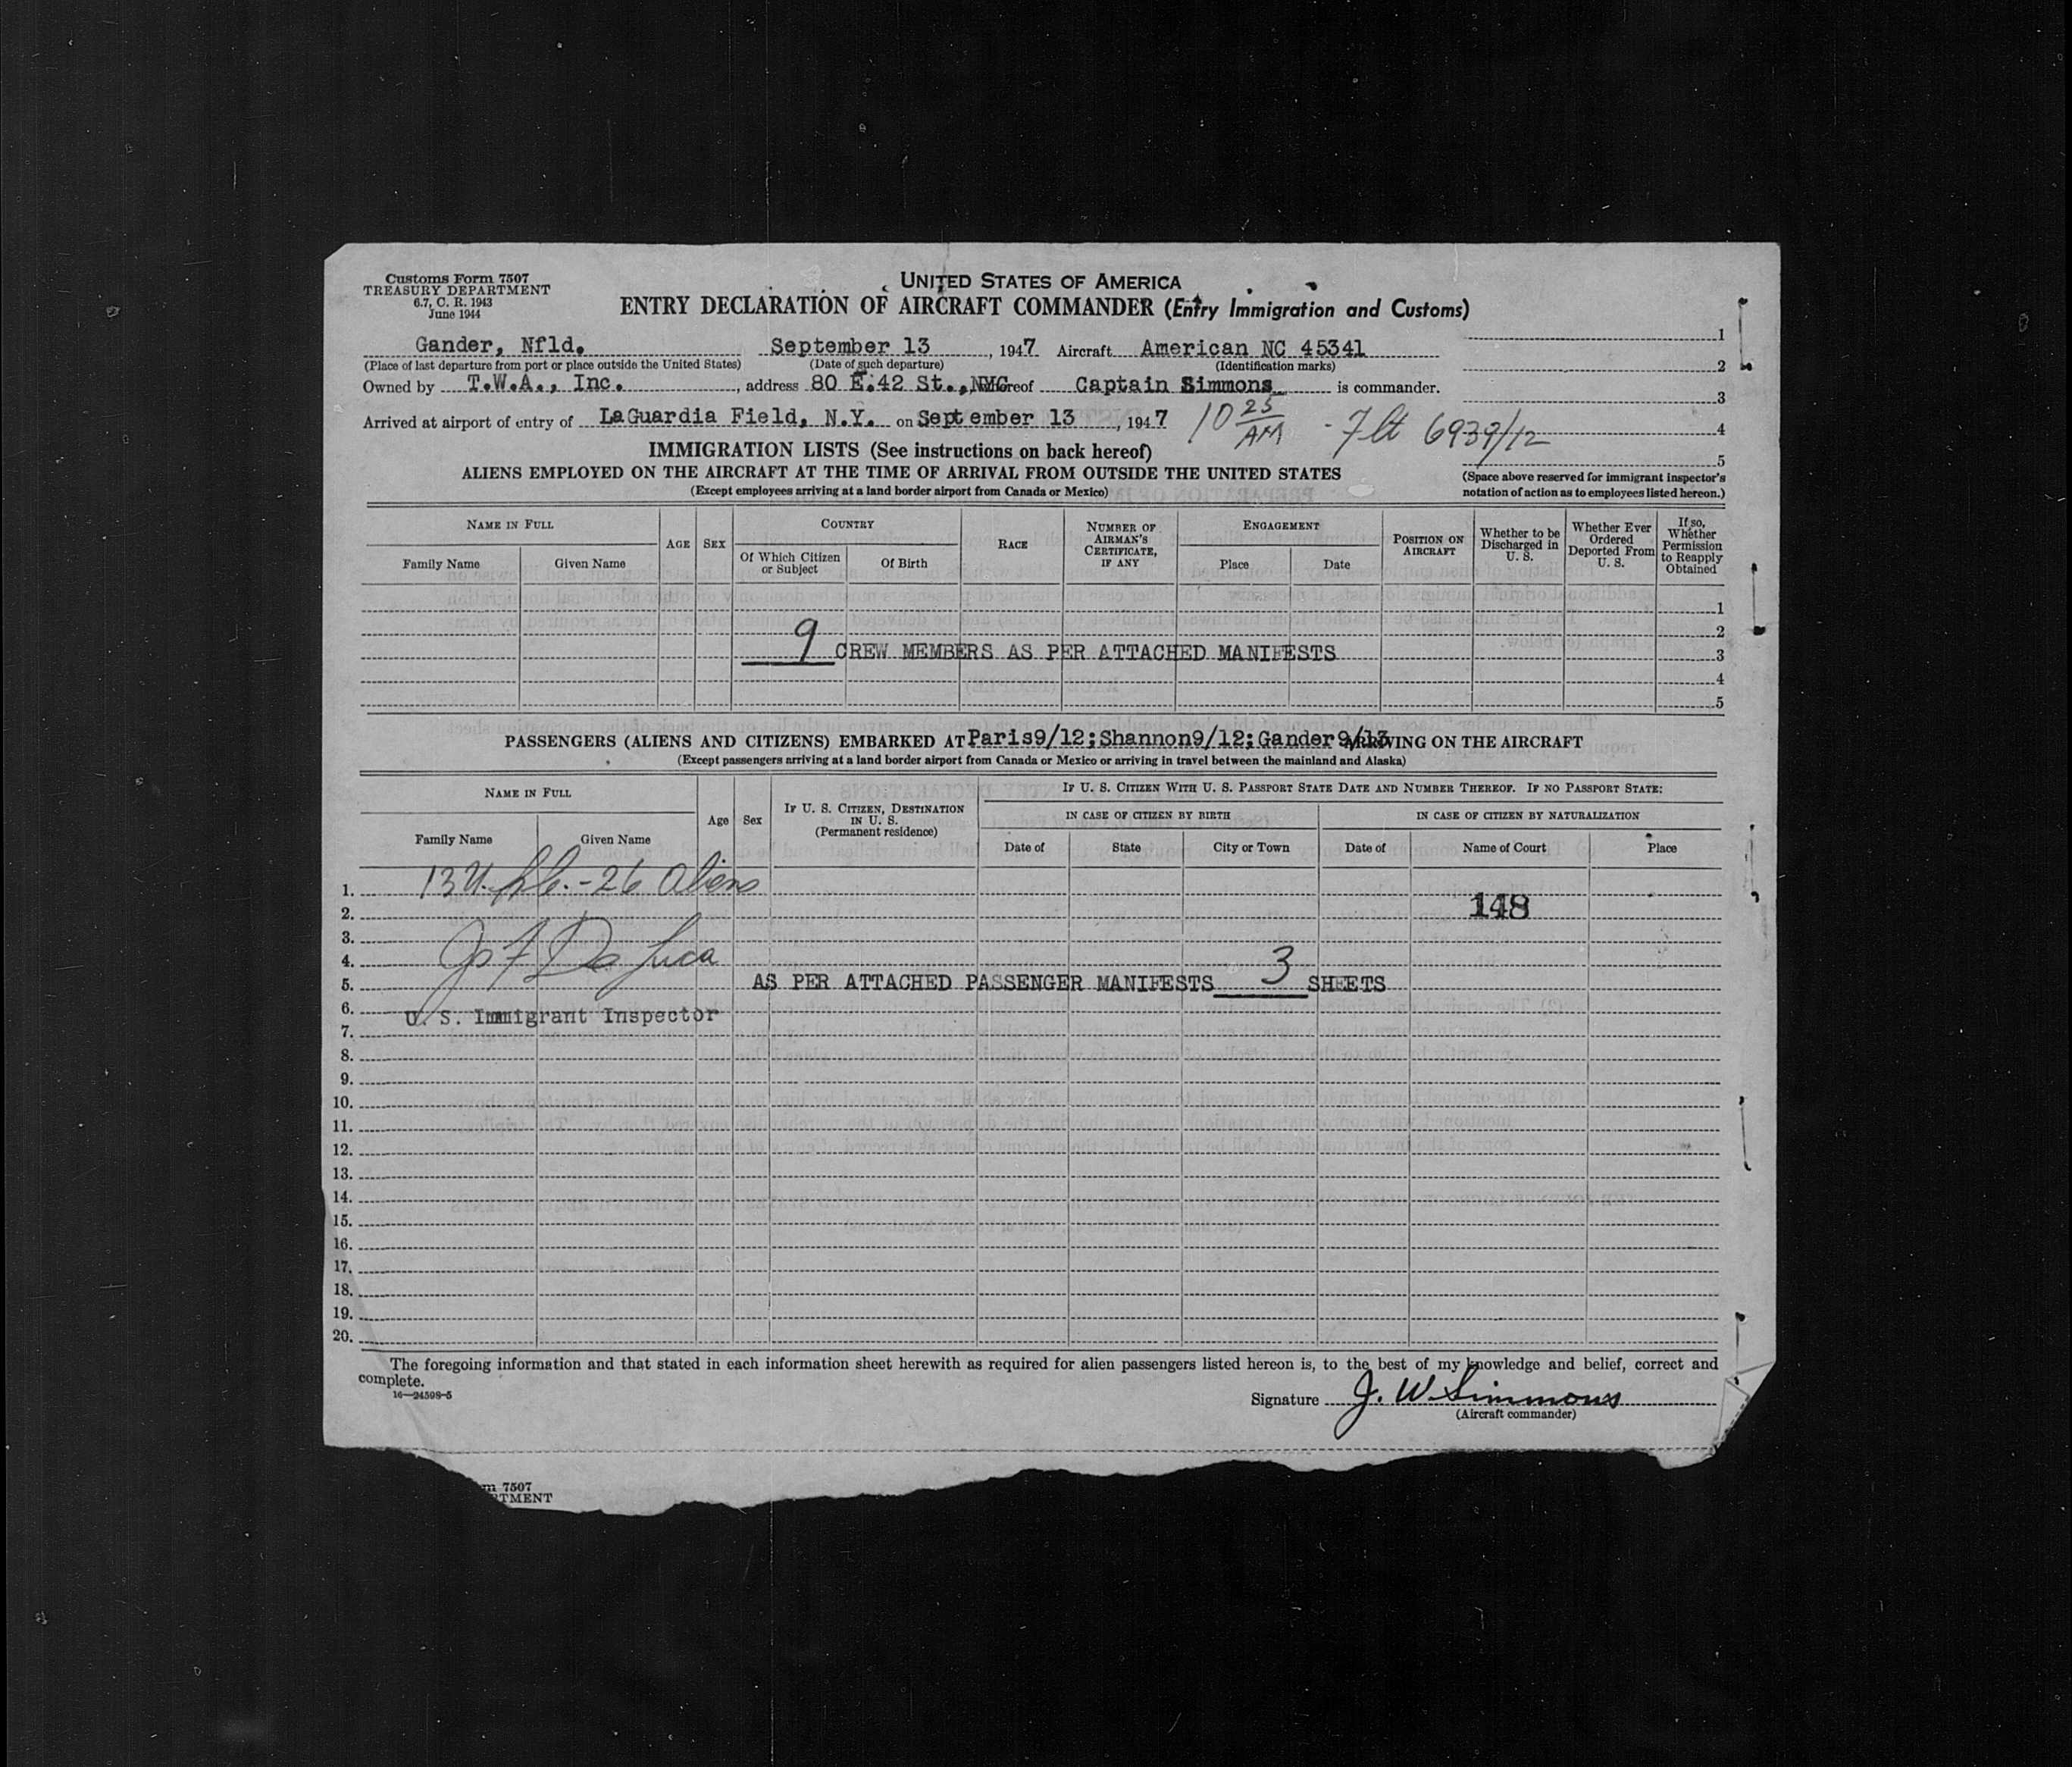 Customs Form 7507
TREASURY DEPARTMENT
6.7, C. R. 1943
June 1944
UNITED STATES OF AMERICA
ENTRY DECLARATION OF AIRCRAFT COMMANDER (Entry Immigration and Customs)
Gander, Nfld. September 13, 1947 Aircraft American NC 45341
(Place of last departure from port or place outside the United States) (Date of such departure) (Identification marks)
Owned by T.W.A., Inc., address 80 E.42 St., NYC whereof Captain Simmons is commander.
Arrived at airport of entry of LaGuardia Field, N.Y. on September 13, 1947 10 25 AM - Flt 6939/12
1
2
3
4
5
(Space above reserved for immigrant inspector's notation of action as to employees listed hereon.)
IMMIGRATION LISTS (See instructions on back hereof)
ALIENS EMPLOYED ON THE AIRCRAFT AT THE TIME OF ARRIVAL FROM OUTSIDE THE UNITED STATES
(Except employees arriving at a land border airport from Canada or Mexico)
NAME IN FULL
Family Name Given Name
AGE SEX
COUNTRY
Of Which Citizen or Subject Of Birth
RACE
NUMBER OF AIRMAN'S CERTIFICATE, IF ANY
ENGAGEMENT
Place Date
POSITION ON AIRCRAFT
Whether to be Discharged in U. S.
Whether Ever Ordered Deported From U. S.
If so, Whether Permission to Reapply Obtained
1
2
9 CREW MEMBERS AS PER ATTACHED MANIFESTS 3
4
5
PASSENGERS (ALIENS AND CITIZENS) EMBARKED AT Paris9/12;Shannon9/12;Gander 9/13 ARRIVING ON THE AIRCRAFT
(Except passengers arriving at a land border airport from Canada or Mexico or arriving in travel between the mainland and Alaska)
NAME IN FULL
Family Name Given Name
Age Sex
IF U. S. CITIZEN, DESTINATION IN U. S. (Permanent residence)
IF U. S. CITIZEN WITH U. S. PASSPORT STATE DATE AND NUMBER THEREOF. IF NO PASSPORT STATE:
IN CASE OF CITIZEN BY BIRTH IN CASE OF CITIZEN BY NATURALIZATION
Date of State City or Town Date of Name of Court Place
1. - 26 Aliens
2. 148
3.
4. De Luca
5. AS PER ATTACHED PASSENGER MANIFESTS 3 SHEETS
6. U. S. Immigrant Inspector
7.
8.
9.
10.
11.
12.
13.
14.
15.
16.
17.
18.
19.
20.
The foregoing information and that stated in each information sheet herewith as required for alien passengers listed hereon is, to the best of my knowledge and belief, correct and
complete.
16—24598-5
Signature J. W. Simmons
(Aircraft commander)
m 7507
RTMENT